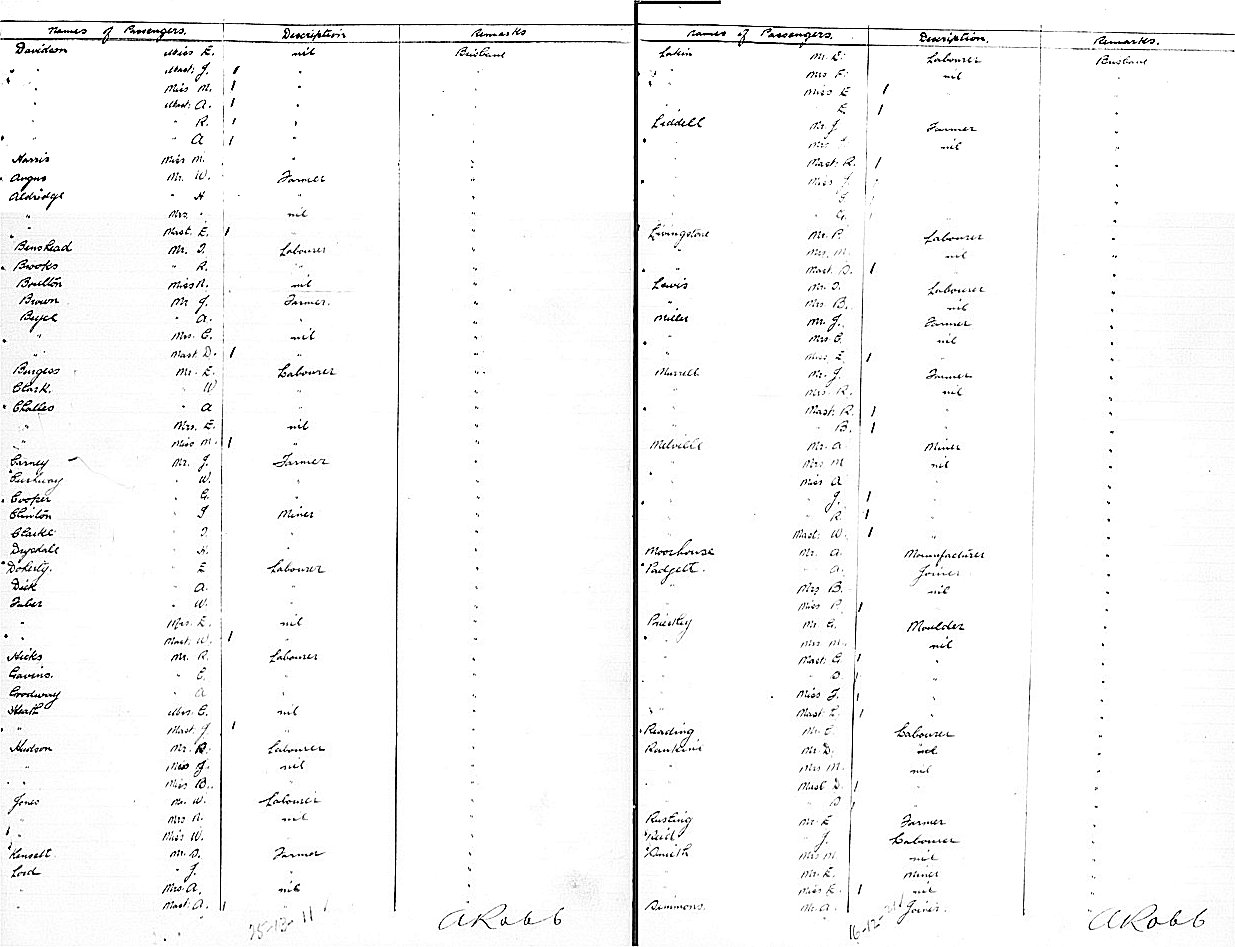 Names of Passengers. Description Remarks
Davidson Miss E. nil Brisbane
" " Mast. J. 1 " "
" " Miss M. 1 " "
" " Mast. A. 1 " "
" " " R. 1 " "
" " " A 1 " "
Harris Miss M. " "
Angus Mr. W. Farmer "
Aldridge " H " "
" Mrs " nil "
" Mast. E. 1 " "
Benshead Mr. T. Labourer "
Brooks " R. " "
Boulton Miss A. nil "
Brown Mr J. Farmer. "
" A. " "
" Mrs. C. nil "
" Mast. D. 1 " "
Burgess Mr. E. Labourer "
Clark. " W " "
" A " "
" Mrs. E. nil "
" Miss M. 1 " "
Carney Mr. J. Farmer "
" W. " "
Cooper " G. " "
Clinton " J Miner "
Clarke " T. " "
Drysdale " H. " "
Doherty. " E Labourer "
Dick " A. " "
Faber " W. " "
" Mrs. E. nil "
" Mast. W. 1 " "
Hicks Mr. R. Labourer "
Gavins. " E. " "
" A " "
Heath Mrs. C. nil "
" Mast. J 1 " "
Hudson Mr. R. Labourer "
" Miss J. nil "
" Miss B. " "
Jones Mr. W. Labourer "
" Mrs A. nil "
" Miss W. " "
Kensett. Mr. D. Farmer "
Lord " J. " "
" Mrs. A. nil "
" Mast. A. 1 " "
A Robb
Names of Passengers. Description. Remarks.
Lakin Mr. E. Labourer Brisbane
" Mrs F. nil "
" Miss E 1 "
" E 1 "
Liddell Mr. J. Farmer "
" Mrs nil "
" Mast. R. 1 "
" Miss J. 1 "
" " J 1 "
" " G. 1 "
Livingstone Mr. P. Labourer "
" Mrs. M. nil "
" Mast. D. 1 " "
Lewis Mr. T. Labourer "
" Mrs B. nil "
Miller Mr. J. Farmer "
" Mrs C. nil "
" Miss E. 1 " "
Murrell Mr. J. Farmer "
" Mrs. R. nil "
" Mast. R. 1 " "
" " B. 1 " "
Melville Mr. A Miner "
" Mrs M nil "
" Miss A " "
" " J. 1 " "
" " R 1 " "
" Mast. W. 1 " "
Moorhouse Mr. A. Mounufacturer "
Padgett. " A. Joiner "
" Mrs B. nil "
" Miss P. 1 " "
Priestley Mr. G. Moulder "
" Mrs M. nil "
" Mast. G. 1 " "
" " D. 1 " "
" Miss F. 1 " "
" Mast. L. 1 " "
Reading Mr. C. Labourer "
Rankine Mr. D. nil "
" Mrs M. nil "
" Mast D. 1 " "
" " D 1 " "
Rusting Mr. E Farmer "
Reid " J. Labourer "
Smith Mrs M. nil "
" Mr. E. Miner "
" Miss E. 1 nil "
Simmons. Mr. A. Joiner. "
A Robb